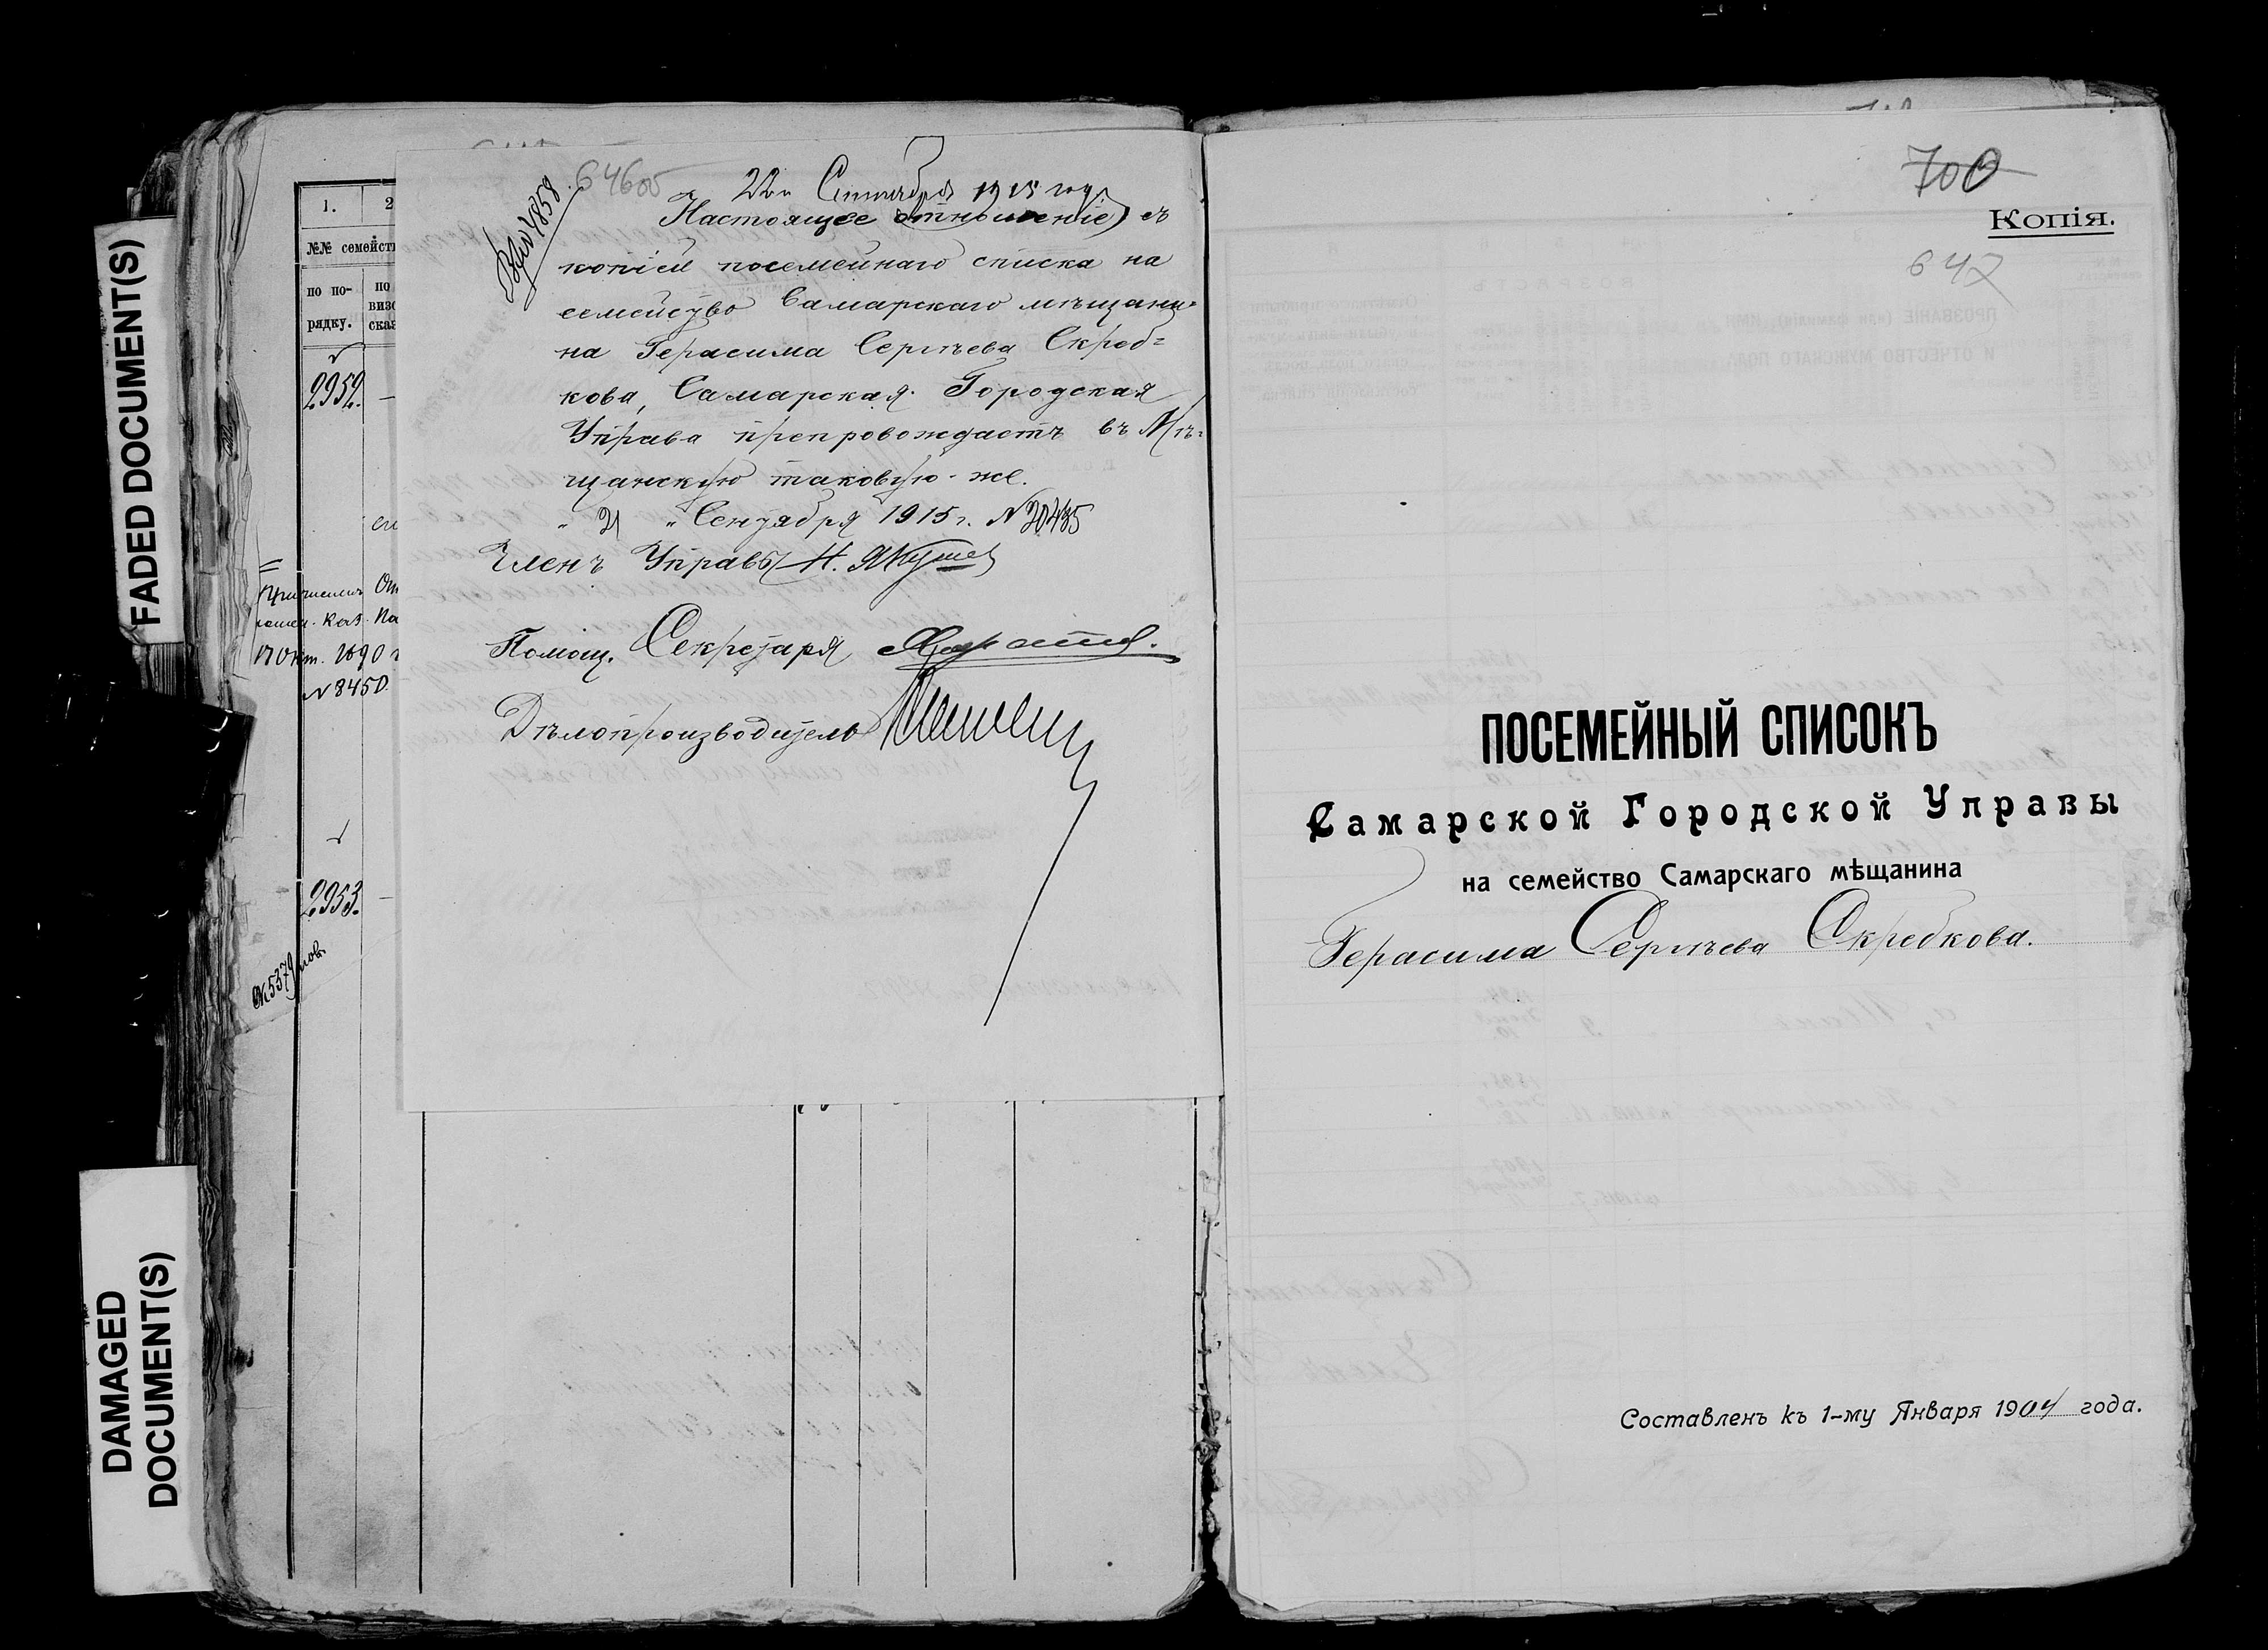 FADED DOCUMENT(S)
DAMAGED
DOCUMENT(S)
1.
2
№№ семейст
по по-
рядку.
по
виз
ска
2952.
От
по
17 Окт. 1890 г
№ 8450
2953.
№ 5379
646об
Вх. № 4858.
22го Сентября 1915 года
Настоящее отношеніе съ
копіей посемейнаго списка на
семейство Самарскаго мѣщани-
на Герасима Сергѣева Скреб-
кова, Самарская Городская
Управа препровождаетъ въ Мѣ-
щанскую таковую-же.
„ 21 „ Сентября 1915 г. № 20435
Членъ Управы Н. Якуше
Помощ. Секретаря
Дѣлопроизводитель
700
Копія.
647
ПОСЕМЕЙНЫЙ СПИСОКЪ
Самарской Городской Управы
на семейство Самарскаго мѣщанина
Герасима Сергѣева Скребкова.
Составленъ къ 1-му Января 1904 года.